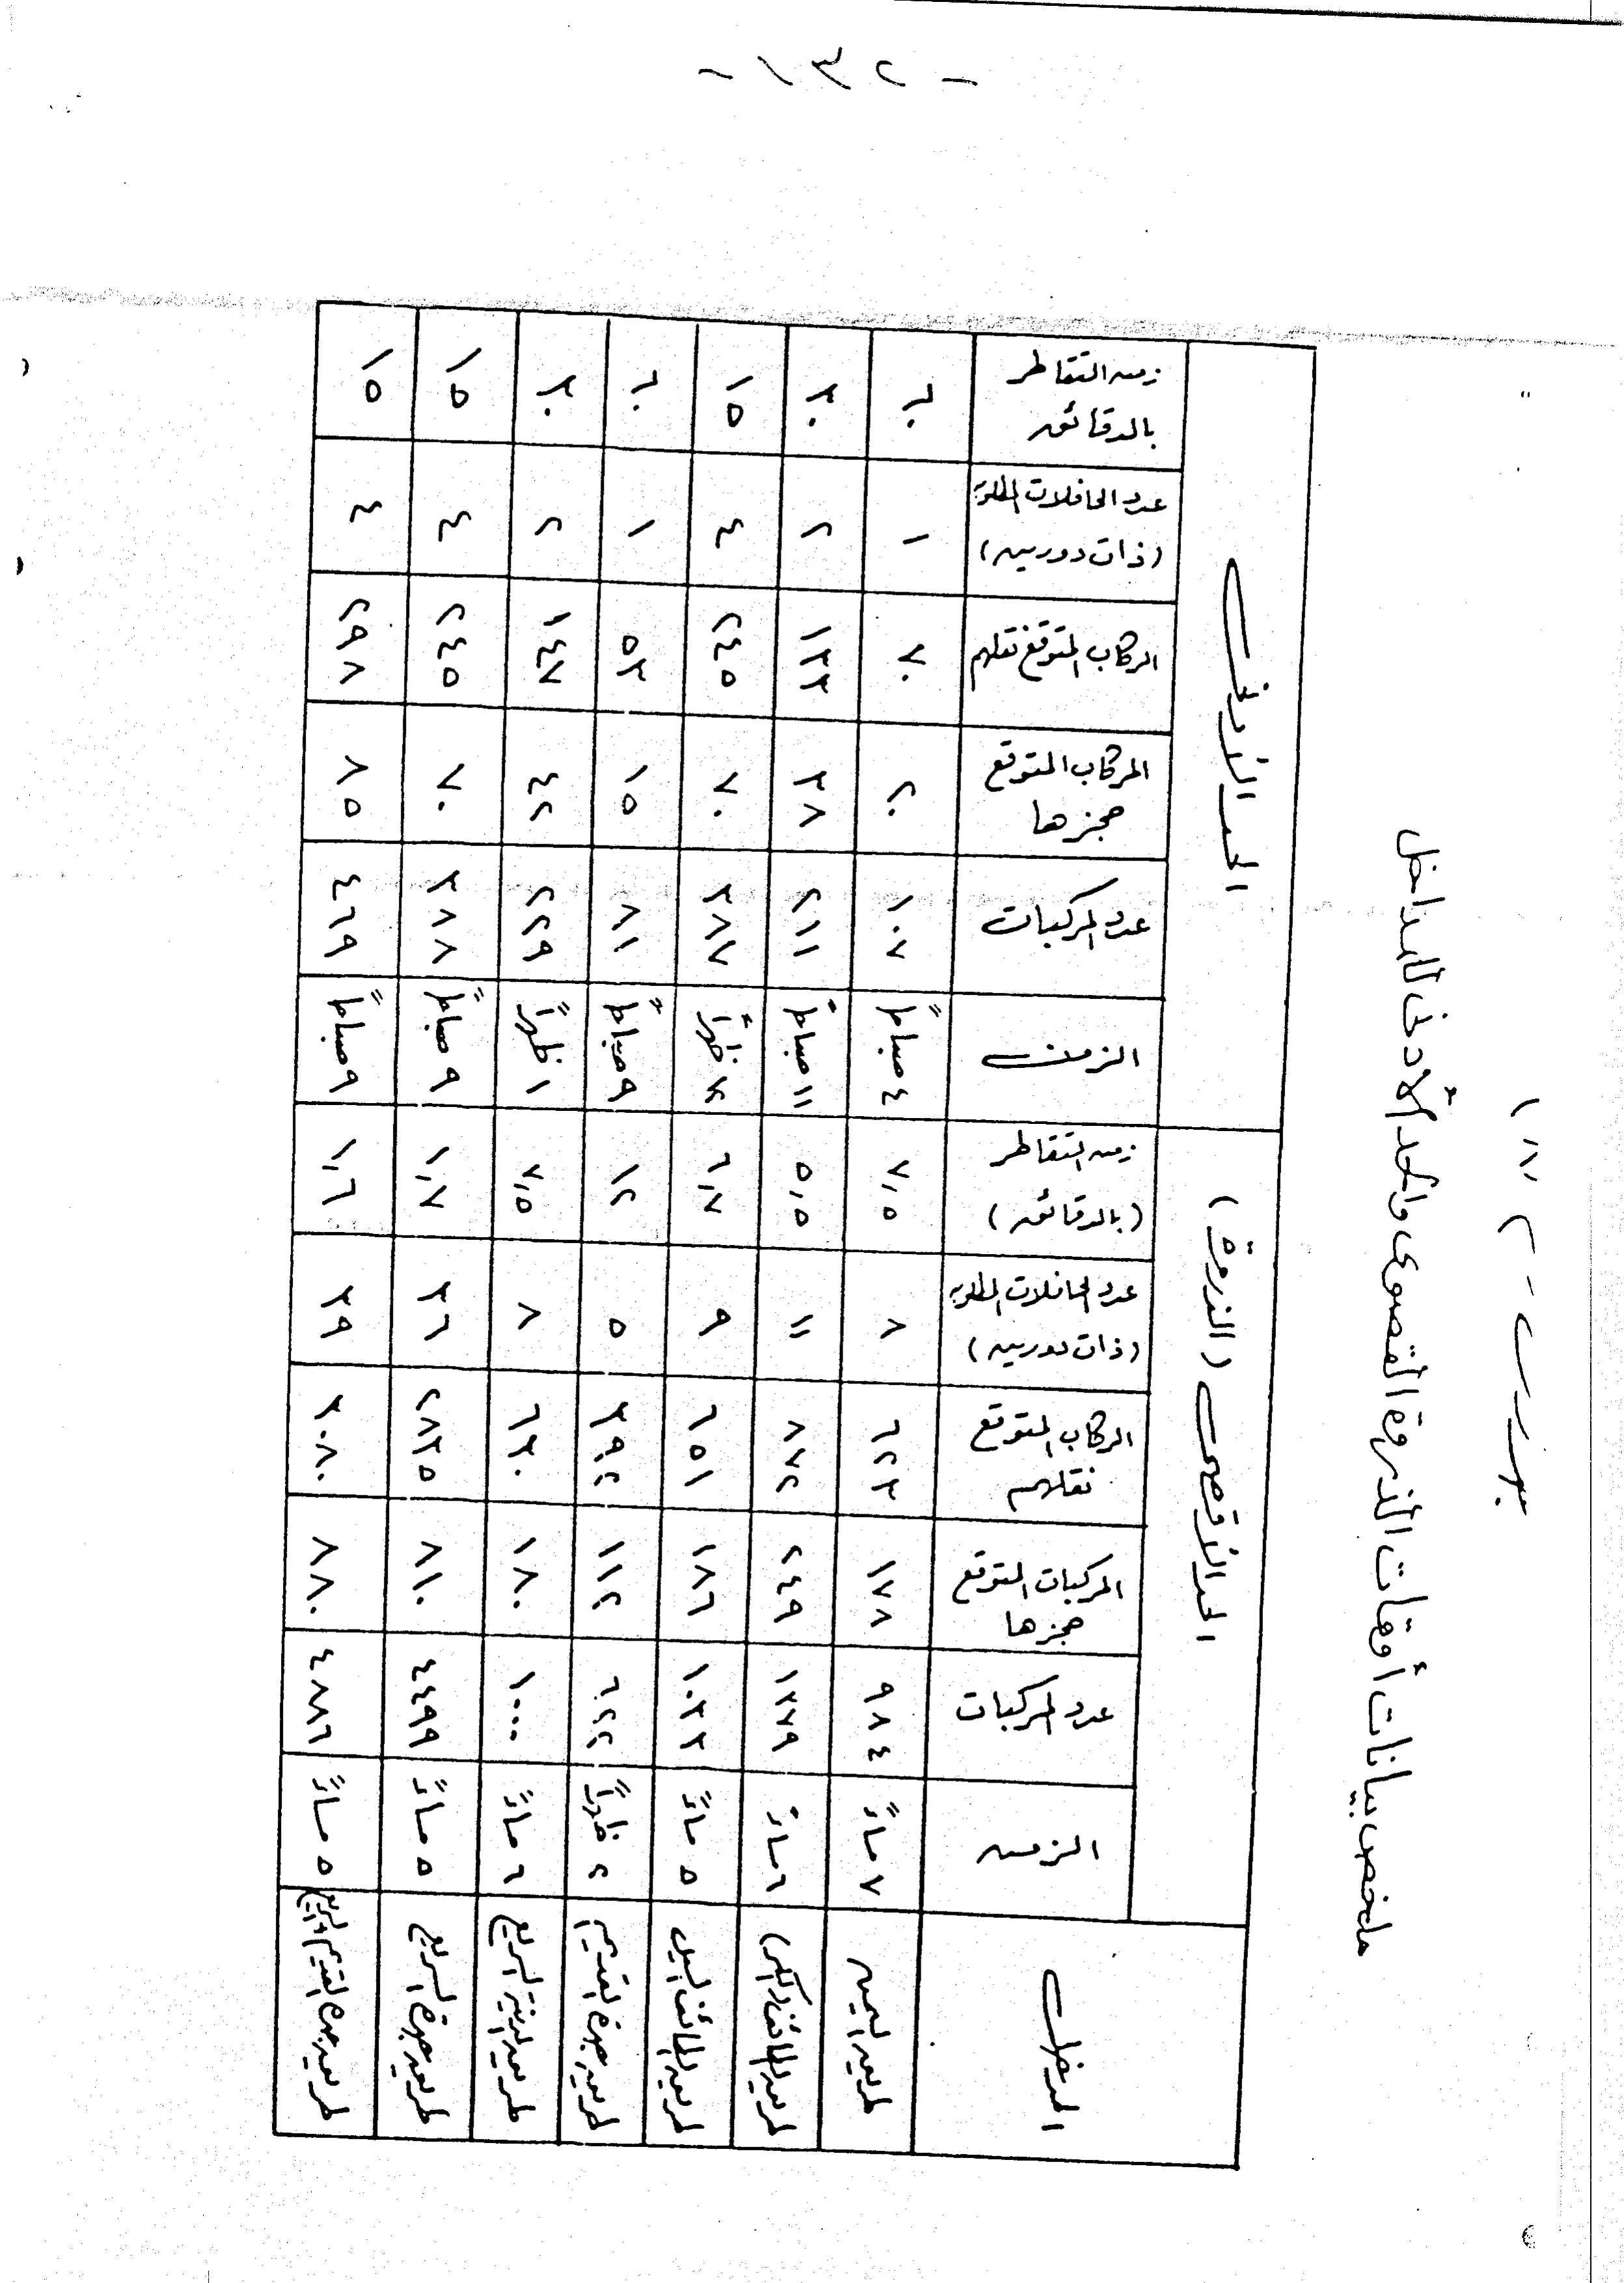 - ٢٣١ -
ملخص بيانات أوقات الذروة القصوى والحد الأدنى للمداخل
المدخل
الحد الأقصى (الذروة)
الحد الأدنى
الزمن
عدد المركبات
المركبات المتوقع
حجزها
الركاب المتوقع
نقلهم
عدد الحافلات المطلوبة
(ذات دورين)
زمن التقاطر
(بالدقائق)
الزمن
عدد المركبات
المركبات المتوقع
حجزها
الركاب المتوقع نقلهم
عدد الحافلات المطلوبة
(ذات دورين)
زمن التقاطر
بالدقائق
طريق اليمن ٧ مساءً ٩٨٤ ١٧٨ ٦٢٣ ٨ ٧,٥ ٤ صباحاً ١٠٧ ٢٠ ٧٠ ١ ٦٠
طريق الطائف (الكر) ٦ مساءً ١٣٧٩ ٢٤٩ ٨٧٢ ١١ ٥,٥ ١١ صباحاً ٢١١ ٣٨ ١٣٣ ٢ ٣٠
طريق الطائف السيل ٥ مساءً ١٠٣٣ ١٨٦ ٦٥١ ٩ ٦,٧ ظهراً ٣٨٧ ٧٠ ٢٤٥ ٤ ١٥
طريق جدة القديم ٢ ظهراً ٦٢٢ ١١٢ ٣٩٢ ٥ ١٢ ٩ صباحاً ٨١ ١٥ ٥٣ ١ ٦٠
طريق المدينة السريع ٦ مساءً ١٠٠٠ ١٨٠ ٦٣٠ ٨ ٧,٥ ١ ظهراً ٢٢٩ ٤٢ ١٤٧ ٢ ٣٠
طريق جدة السريع ٥ مساءً ٤٤٩٩ ٨١٠ ٢٨٣٥ ٣٦ ١,٧ ٩ صباحاً ٣٨٨ ٧٠ ٢٤٥ ٤ ١٥
طريق جدة القديم والسريع ٥ مساءً ٤٨٨٦ ٨٨٠ ٣٠٨٠ ٣٩ ١,٦ ٩ صباحاً ٤٦٩ ٨٥ ٢٩٨ ٤ ١٥